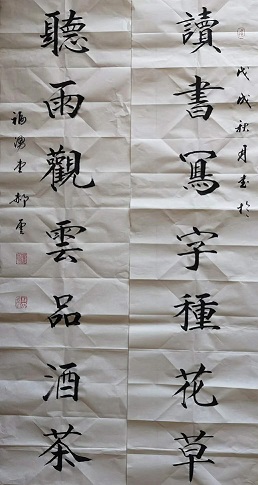 戊戌秋月書於
讀書寫字種花草
聽雨觀雲品酒茶